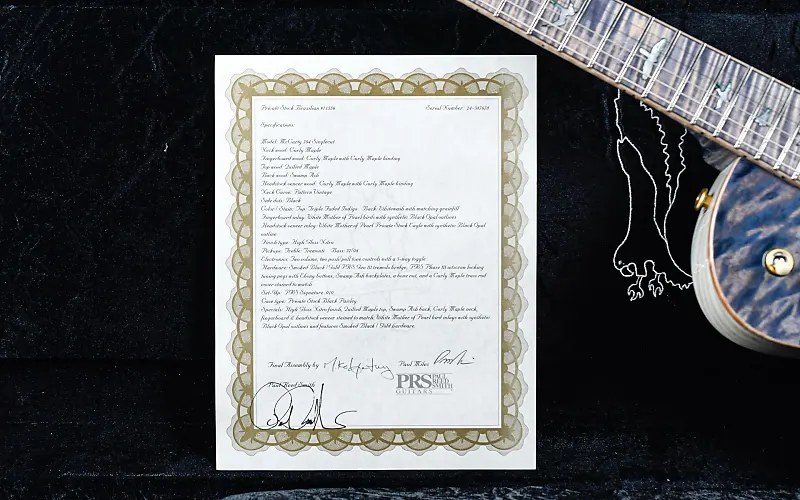 Private Stock Brazilian #11556 Serial Number: 24-
Specifications:
Model: McCarty 594 Singlecut
Neck wood: Curly Maple
Fingerboard wood: Curly Maple with Curly Maple binding
Top wood: Quilted Maple
Back wood: Swamp Ash
Headstock veneer wood: Curly Maple with Curly Maple binding
Neck Carve: Pattern Vintage
Side dots: Black
Color / Stain: Top: Triple Faded Indigo Back: Whitewash with matching grainfill
Fingerboard inlay: White Mother of Pearl birds with synthetic Black Opal outlines
Headstock veneer inlay: White Mother of Pearl Private Stock Eagle with synthetic Black Opal
outline
Finish type: High Gloss Nitro
Pickups: Treble: Tremonti Bass: 57/08
Electronics: Two volume, two push/pull tone controls with a 3-way toggle
Hardware: Smoked Black/Gold PRS Gen III tremolo bridge, PRS Phase III setscrew locking
tuning pegs with Ebony buttons, Swamp Ash backplates, a bone nut, and a Curly Maple truss rod
cover stained to match
Set-Up: PRS Signature .010
Case type: Private Stock Black Paisley
Specials: High Gloss Nitro finish, Quilted Maple top, Swamp Ash back, Curly Maple neck,
fingerboard & headstock veneer stained to match, White Mother of Pearl bird inlays with synthetic
Black Opal outlines and features Smoked Black / Gold hardware.
Final Assembly by Paul Miles
PRS PAUL REED SMITH
GUITARS
Paul Reed Smith